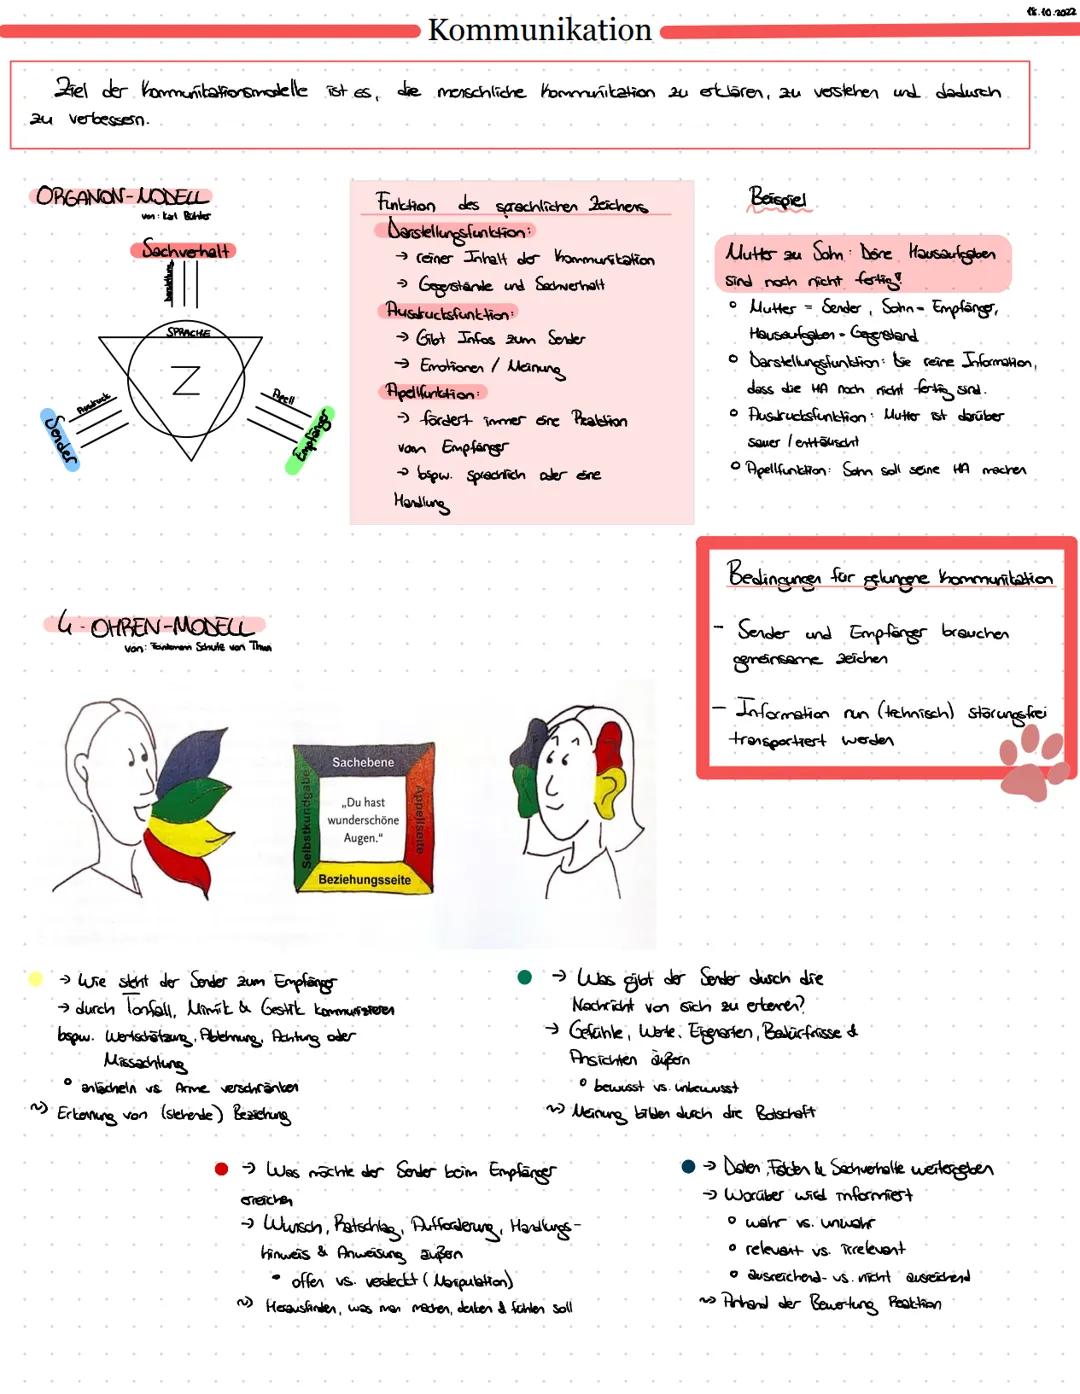 18.10.2022
Kommunikation
Ziel der Kommunikationsmodelle ist es, die menschliche Kommunikation zu erklären, zu verstehen und dadurch
zu verbessern.
ORGANON-MODELL
von: Karl Bühler
Sachverhalt
Darstellung
SPRACHE
Z
Ausdruck
Apell
Sender
Empfänger
Funktion des sprachlichen Zeichens
Darstellungsfunktion:
→ reiner Inhalt der Kommunikation
→ Gegenstände und Sachverhalt
Ausdrucksfunktion:
→ Gibt Infos zum Sender
→ Emotionen / Meinung
Apellfunktion:
→ fordert immer eine Reaktion
vom Empfänger
→ bspw. sprachlich oder eine
Handlung
Beispiel
Mutter zu Sohn: Deine Hausaufgaben
sind noch nicht fertig!
° Mutter = Sender, Sohn = Empfänger,
Hausaufgaben = Gegenstand
° Darstellungsfunktion: Die reine Information,
dass die HA noch nicht fertig sind.
° Ausdrucksfunktion: Mutter ist darüber
sauer / enttäuscht
° Apellfunktion: Sohn soll seine HA machen
Bedingungen für gelungene Kommunikation
- Sender und Empfänger brauchen
gemeinsame Zeichen
- Information nun (technisch) störungsfrei
transportiert werden
4-OHREN-MODELL
von: Schulz von Thun
Sachebene
Selbstkundgabe
„Du hast
wunderschöne
Augen.“
Appellseite
Beziehungsseite
→ Wie steht der Sender zum Empfänger
→ durch Tonfall, Mimik & Gestik kommunizieren
bspw. Wertschätzung, Ablehnung, Achtung oder
Missachtung
° anlächeln vs. Arme verschränken
~> Erkennung von (stehende) Beziehung
→ Was gibt der Sender durch die
Nachricht von sich zu erkennen?
→ Gefühle, Werte, Eigenarten, Bedürfnisse &
Ansichten äußern
° bewusst vs. unbewusst
~> Meinung bilden durch die Botschaft
→ Was möchte der Sender beim Empfänger
erreichen
→ Wunsch, Ratschlag, Aufforderung, Handlungs-
hinweis & Anweisung äußern
• offen vs. verdeckt (Manipulation)
~> Herausfinden, was man machen, denken & fühlen soll
→ Daten, Fakten & Sachverhalte weitergeben
→ Worüber wird informiert
° wahr vs. unwahr
° relevant vs. irrelevant
° ausreichend vs. nicht ausreichend
~> Anhand der Bewertung Reaktion